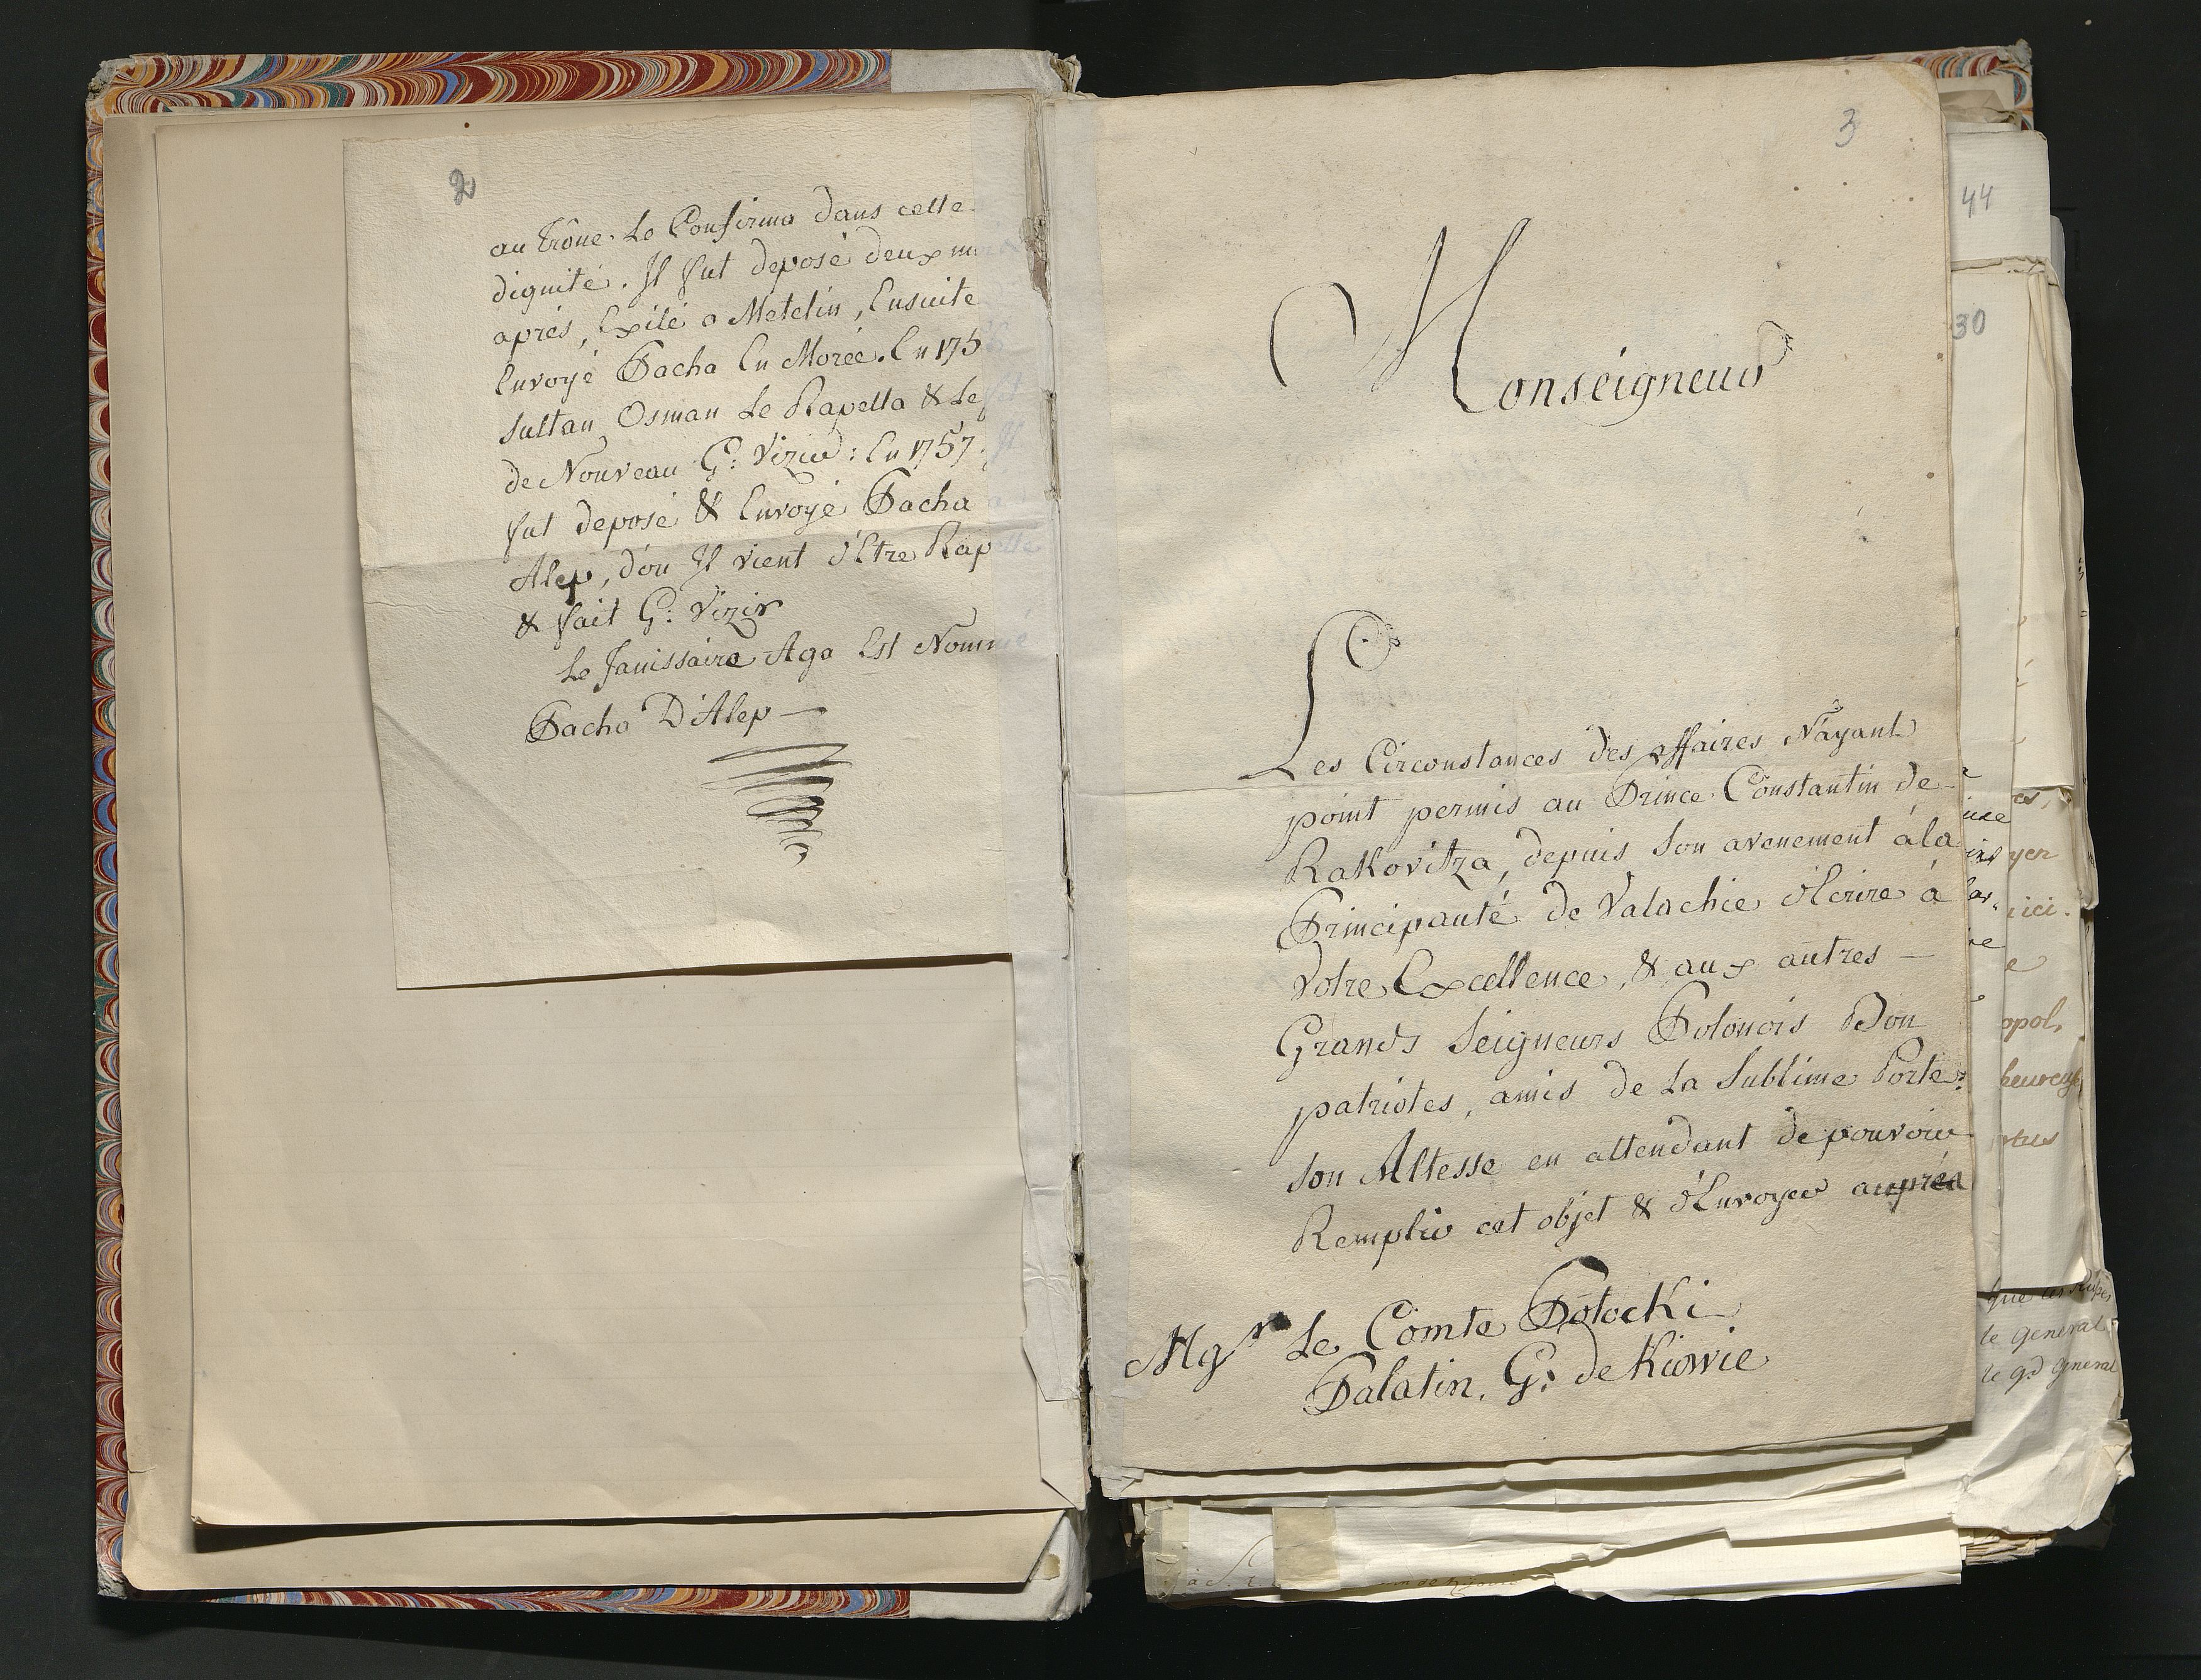 2
au trône le Confirma dans cette
dignité. Il fut deposé deux mois
aprés, Exilé a Metelin, Ensuite
Envoyé Pacha En Morée. En 175
Sultan Osman Le Rapella & Le fit
de Nouveau G: Vizir: En 1757. Il
fut deposé & Envoyé Pacha a
Alep, d'ou Il vient d'Etre Rappellé
& fait G: Vizir
Le Janissaire Aga Est Nommé
Pacha D'Alep —
3
Monseigneur
Les Circonstances des affaires N'ayant
point permis au Prince Constantin de
Rakovitza, depuis Son avenement à la
Principauté de Valachie d'Ecrire à
Votre Excellence, & aux autres —
Grands Seigneurs Polonois Bon
patriotes, amis de La Sublime Porte:
Son Altesse en attendant de pouvoir
Remplir cet objet & d'Envoyer auprés
Mgr Le Comte Potocki
Palatin. G: de Kiowie
44
30
yer
ici.
opol,
heureux
le General
le gd General